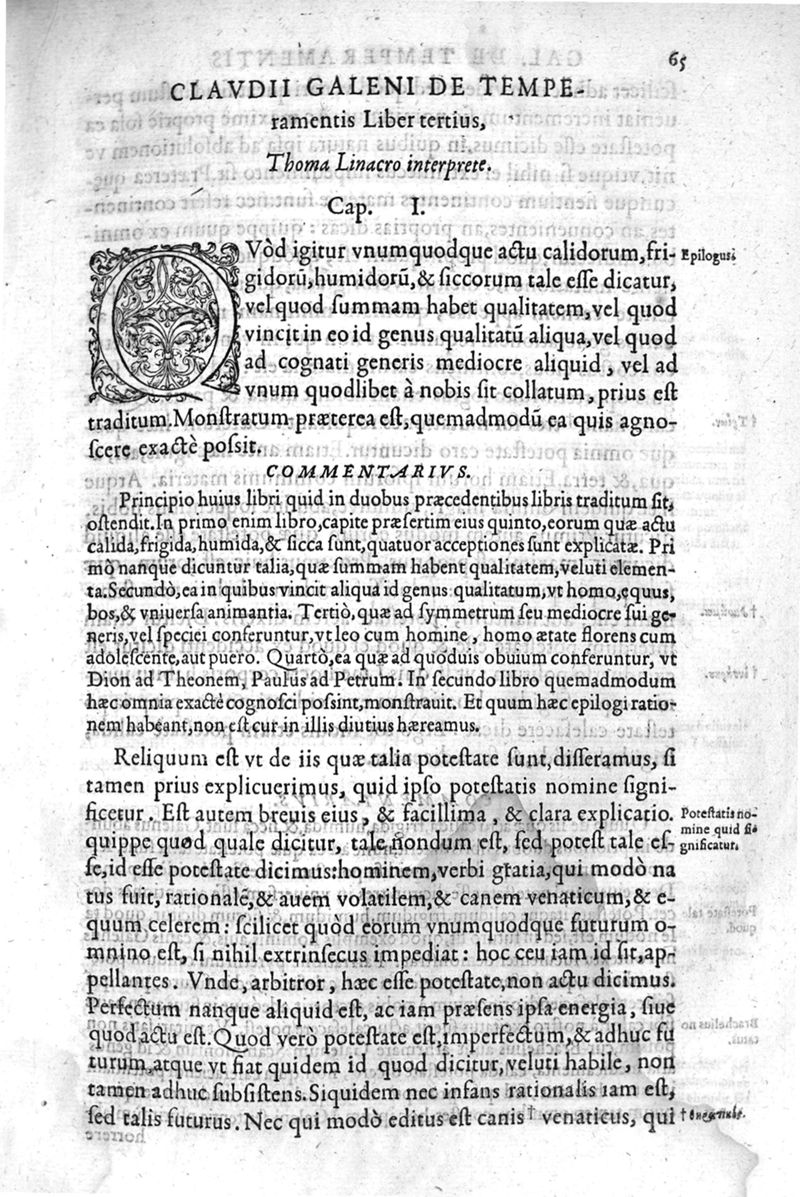 65
CLAVDII GALENI DE TEMPE-
ramentis Liber tertius,
Thoma Linacro interprete.
Cap. I.
QVòd igitur vnumquodque actu calidorum, fri-
Epilogus.
gidorũ, humidorũ, & siccorum tale esse dicatur,
vel quod summam habet qualitatem, vel quod
vincit in eo id genus qualitatũ aliqua, vel quod
ad cognati generis mediocre aliquid, vel ad
vnum quodlibet à nobis sit collatum, prius est
traditum. Monstratum præterea est, quemadmodũ ea quis agno-
scere exactè possit.
COMMENTARIVS.
Principio huius libri quid in duobus præcedentibus libris traditum sit,
ostendit. In primo enim libro, capite præsertim eius quinto, eorum quæ actu
calida, frigida, humida, & sicca sunt, quatuor acceptiones sunt explicatæ. Pri
mò nanque dicuntur talia, quæ summam habent qualitatem, veluti elemen-
ta. Secundò, ea in quibus vincit aliqua id genus qualitatum, vt homo, equus,
bos, & vniuersa animantia. Tertiò, quæ ad symmetrum seu mediocre sui ge-
neris, vel speciei conferuntur, vt leo cum homine, homo ætate florens cum
adolescente, aut puero. Quartò, ea quæ ad quoduis obuium conferuntur, vt
Dion ad Theonem, Paulus ad Petrum. In secundo libro quemadmodum
hæc omnia exactè cognosci possint, monstrauit. Et quum hæc epilogi ratio-
nem habeant, non est cur in illis diutius hæreamus.
Reliquum est vt de iis quæ talia potestate sunt, disseramus, si
tamen prius explicuerimus, quid ipso potestatis nomine signi-
ficetur. Est autem breuis eius, & facillima, & clara explicatio.
Potestatis no-
mine quid si-
gnificatur.
quippe quod quale dicitur, tale nondum est, sed potest tale es-
se, id esse potestate dicimus: hominem, verbi gratia, qui modò na
tus fuit, rationalẽ, & auem volatilem, & canem venaticum, & e-
quum celerem: scilicet quòd eorum vnumquodque futurum o-
mnino est, si nihil extrinsecus impediat: hoc ceu iam id sit, ap-
pellantes. Vnde, arbitror, hæc esse potestate, non actu dicimus.
Perfectum nanque aliquid est, ac iam præsens ipsa energia, siue
quod actu est. Quod verò potestate est, imperfectum, & adhuc fu
turum, atque vt fiat quidem id quod dicitur, veluti habile, non
tamen adhuc subsistens. Siquidem nec infans rationalis iam est,
sed talis futurus. Nec qui modò editus est canis † venaticus, qui